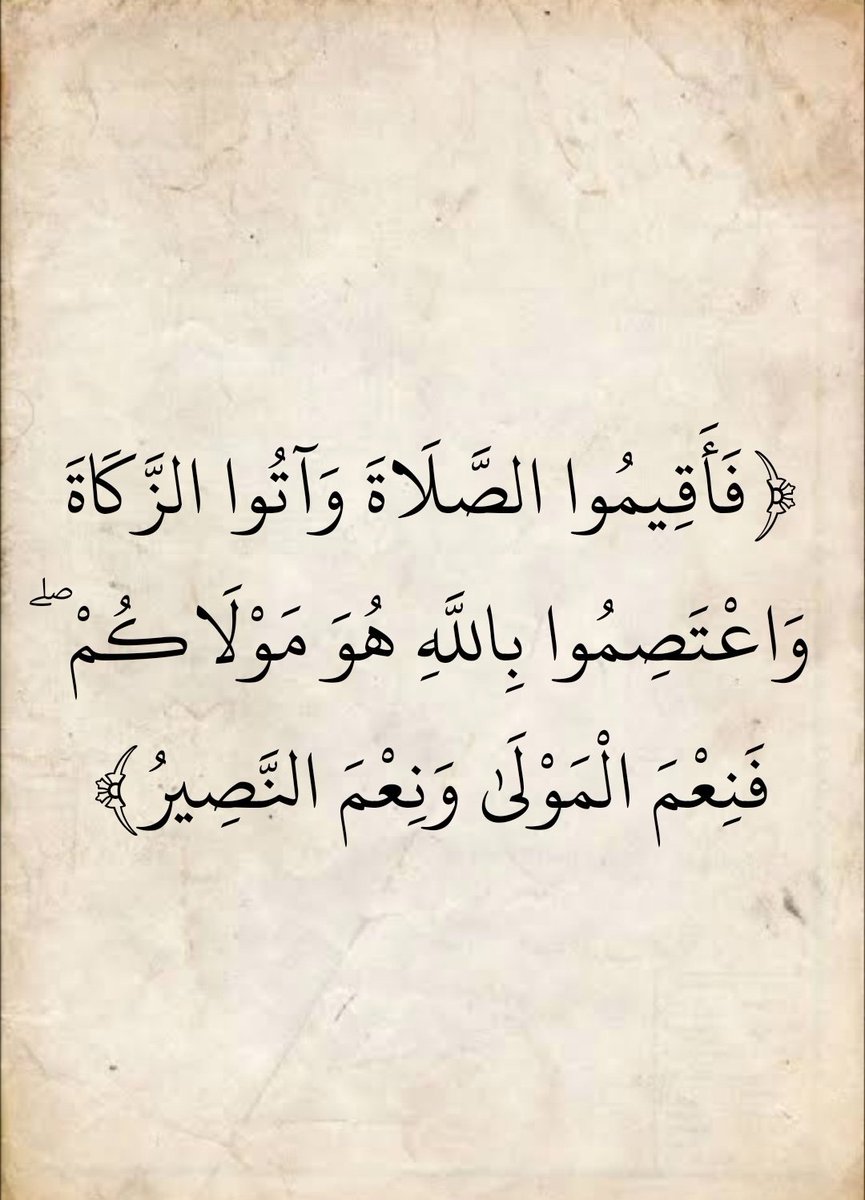 ﴿فَأَقِيمُوا الصَّلَاةَ وَآتُوا الزَّكَاةَ
وَاعْتَصِمُوا بِاللَّهِ هُوَ مَوْلَاكُمْ ۖ
فَنِعْمَ الْمَوْلَىٰ وَنِعْمَ النَّصِيرُ﴾